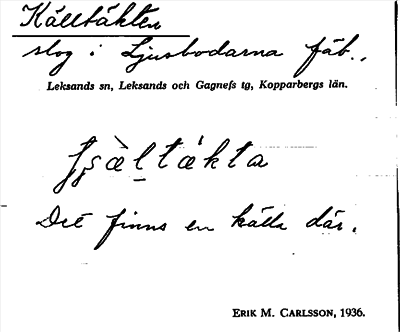 Källtäkten
slog i Ljusbodarna fäb.,
Leksands sn, Leksands och Gagnefs tg, Kopparbergs län.
Det finns en källa där.
ERIK M. CARLSSON, 1936.